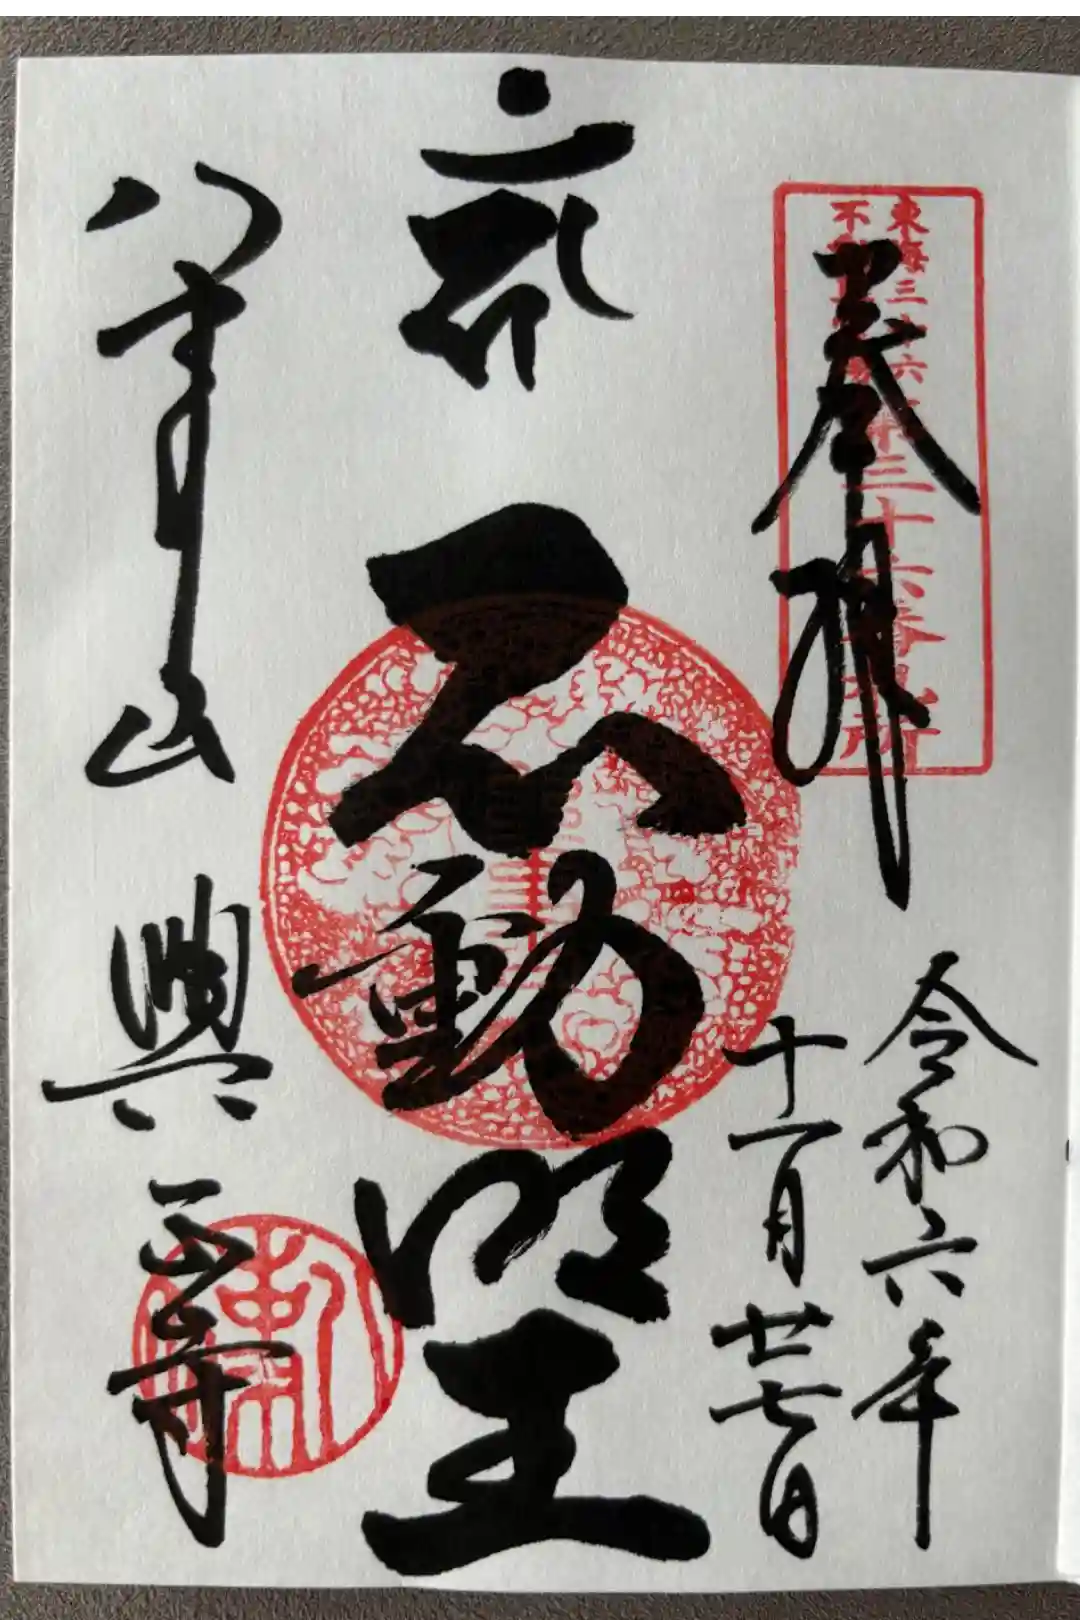 東海三十六
不動
三十六番札所
奉拝
令和六年
十一月廿七日
不動明王
八事山
興正寺